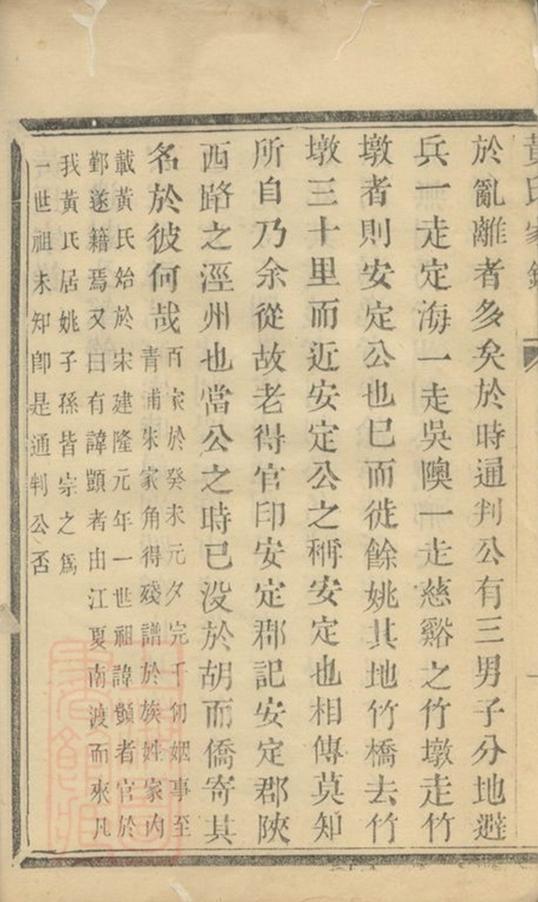 黃氏家錄
於亂離者多矣於時通判公有三男子分地避
兵一走定海一走吳隩一走慈谿之竹墩走竹
墩者則安定公也已而徙餘姚其地竹橋去竹
墩三十里而近安定公之稱安定也相傳莫知
所自乃余從故老得官印安定郡記安定郡陝
西路之涇州也當公之時已没於胡而僑寄其
名於彼何哉百家於癸未元夕完千初姻事至
青浦朱家角得殘譜於族姓家内
載黃氏始於宋建隆元年一世祖諱顗者官於
鄞遂籍焉又曰有諱顗者由江夏南渡而來凡
我黃氏居姚子孫皆宗之爲
一世祖未知卽是通判公否